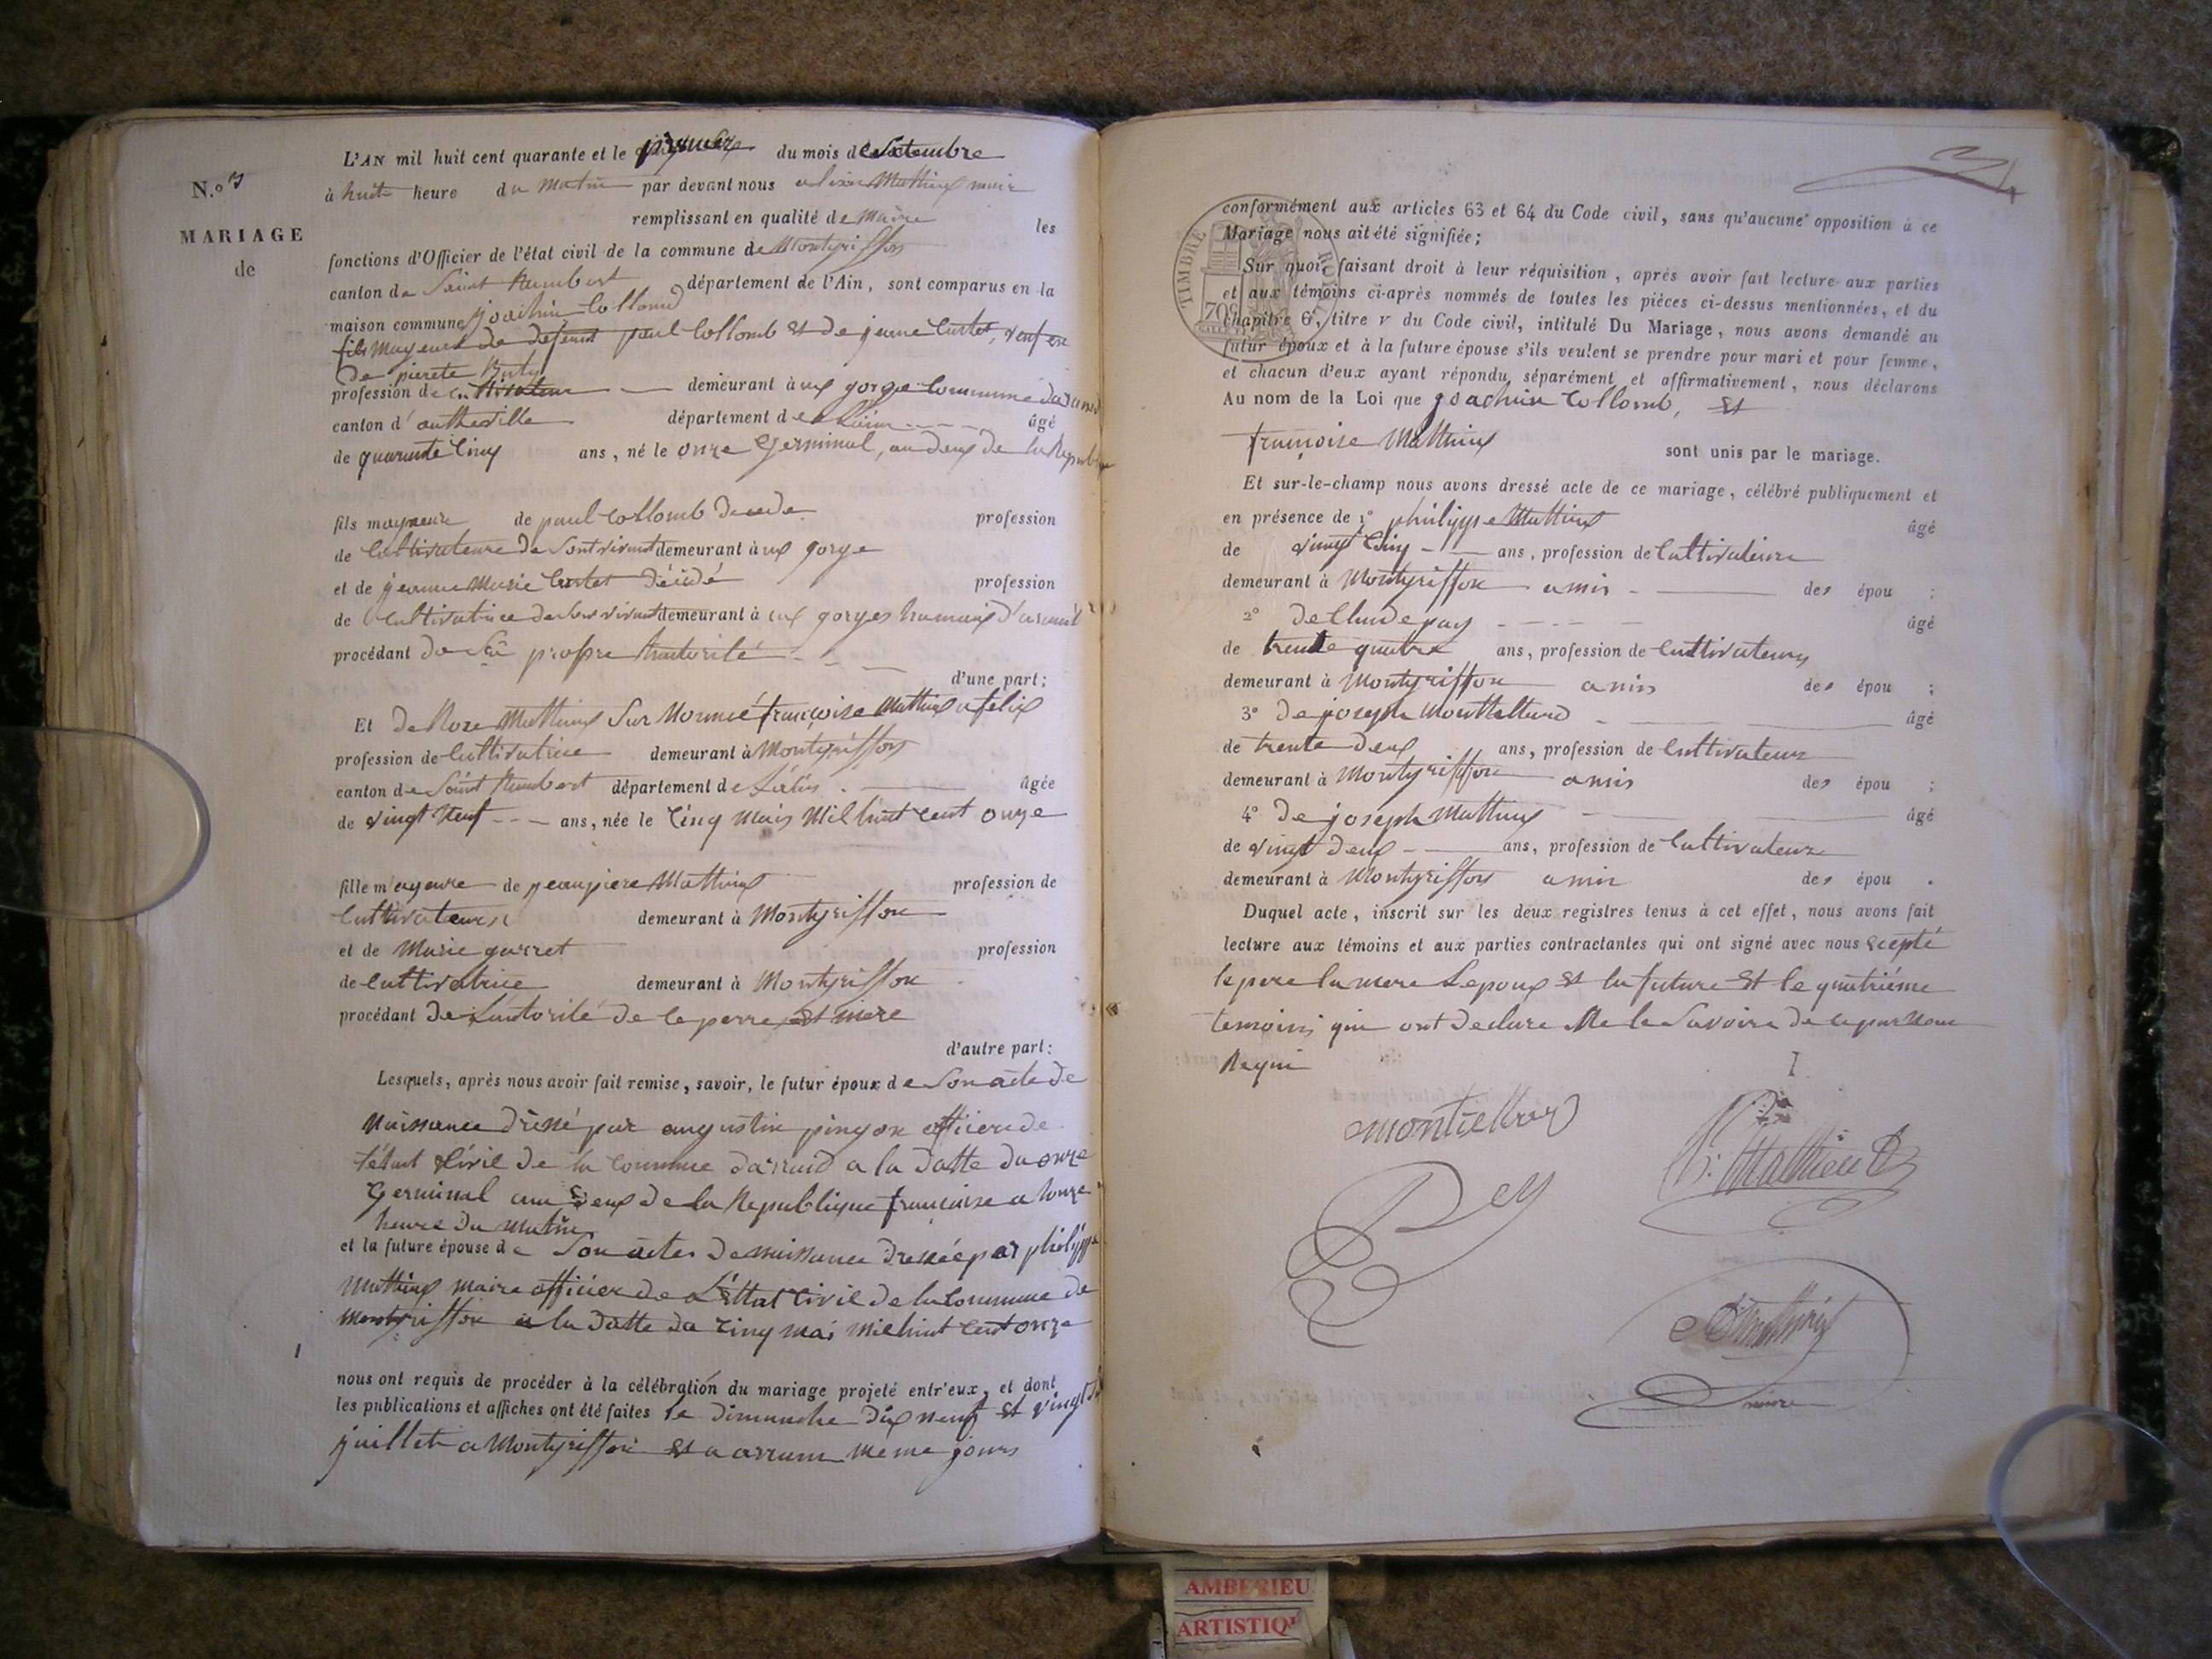 L'AN mil huit cent quarante et le premier du mois de Setembre
N.o 7
à huit heure du matin par devant nous Mathieux maire
remplissant en qualité de maire les
MARIAGE
de
fonctions d'Officier de l'état civil de la commune de Montgriffon
canton de Saint Rambert département de l'Ain, sont comparus en la
maison commune joachin Collomb
fils mayeur de defunt paul Collomb et de jeanne Curtet, veuf en
de pierete
profession de cultivateur demeurant à ux gorge Commune
canton d' département de Lain âgé
de quarante Cinq ans, né le onze Germinal, an deux de la Republique
fils mayeure de paul Collomb profession
de Cultivateure de Sont vivant demeurant à ux gorge
et de jeanne Marie Curtet décidé profession
de Cultivatrice de Son vivant demeurant à ux gorges
procédant de propre
d'une part;
Et de Roze Mathieux Sur Nommé françoise Mathieux
profession de Cultivatrice demeurant à Montgriffon
canton de Saint Rambert département de Lain âgée
de vingt Neuf ans, née le Cinq Mais Mil huit Cent onze
fille mayeure de jeanpiere Mathieux profession de
Cultivateur demeurant à Montgriffon
et de Marie garret profession
de Cultivatrice demeurant à Montgriffon
procédant De Lautorité de le perre et mere
d'autre part:
Lesquels, après nous avoir fait remise, savoir, le futur époux de Son acte de
Naissance par augustin pingon officier de
létat Civil de la Commune a la datte du onze
Germinal an deux de la Republique francaise a honze
heure du Matin
et la future épouse de Son actes de naissance par philippe
Mathieux maire officier de L'éttat Civil de la Commune de
Montgriffon a la datte du Cinq mai mil huit Cent onze
nous ont requis de procéder à la célébration du mariage projeté entr'eux, et dont
les publications et affiches ont été faites le dimanche dix neuf et vingt
juillet a Montgriffon et a meme jours
conformément aux articles 63 et 64 du Code civil, sans qu'aucune opposition à ce
Mariage nous ait été signifiée;
TIMBRE ROYAL
Sur quoi, faisant droit à leur réquisition, après avoir fait lecture aux parties
et aux témoins ci-après nommés de toutes les pièces ci-dessus mentionnées, et du
chapitre 6, titre v du Code civil, intitulé Du Mariage, nous avons demandé au
futur époux et à la future épouse s'ils veulent se prendre pour mari et pour femme,
et chacun d'eux ayant répondu séparément et affirmativement, nous déclarons
Au nom de la Loi que joachin Collomb, et
françoise Mathieux
sont unis par le mariage.
Et sur-le-champ nous avons dressé acte de ce mariage, célébré publiquement et
en présence de 1° philippe Mathieux âgé
de vingt Cinq ans, profession de Cultivateure
demeurant à Montgriffon amis des épou ;
2° de Claude pay âgé
de trente quatre ans, profession de Cultivateurs
demeurant à Montgriffon amis des épou ;
3° de joseph Monttelturd âgé
de trente deux ans, profession de Cultivateur
demeurant à Montgriffon amis des épou ;
4° de joseph Mathieux âgé
de vingt deux ans, profession de Cultivateur
demeurant à Montgriffon amis des épou .
Duquel acte, inscrit sur les deux registres tenus à cet effet, nous avons fait
lecture aux témoins et aux parties contractantes qui ont signé avec nous
le pere la mere Lepoux et la future et le quatriéme
temoins qui ont declare Ne le Savoire de ce par Nous
Requi
Mathieu
maire
AMBERIEU
ARTISTIQ